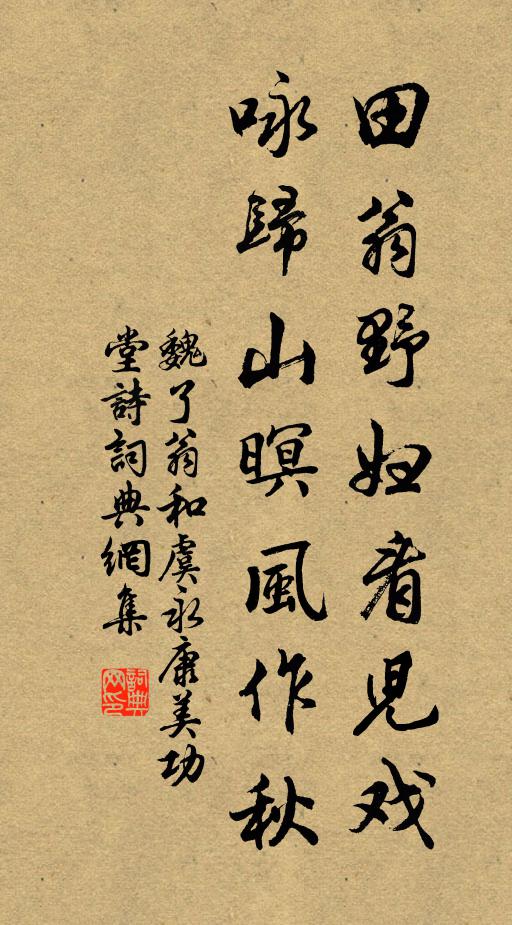 田翁野妇看児戏
咏歸山暝風作秋
魏了翁和虞永康美功
堂詩詞典網集
詞典网印